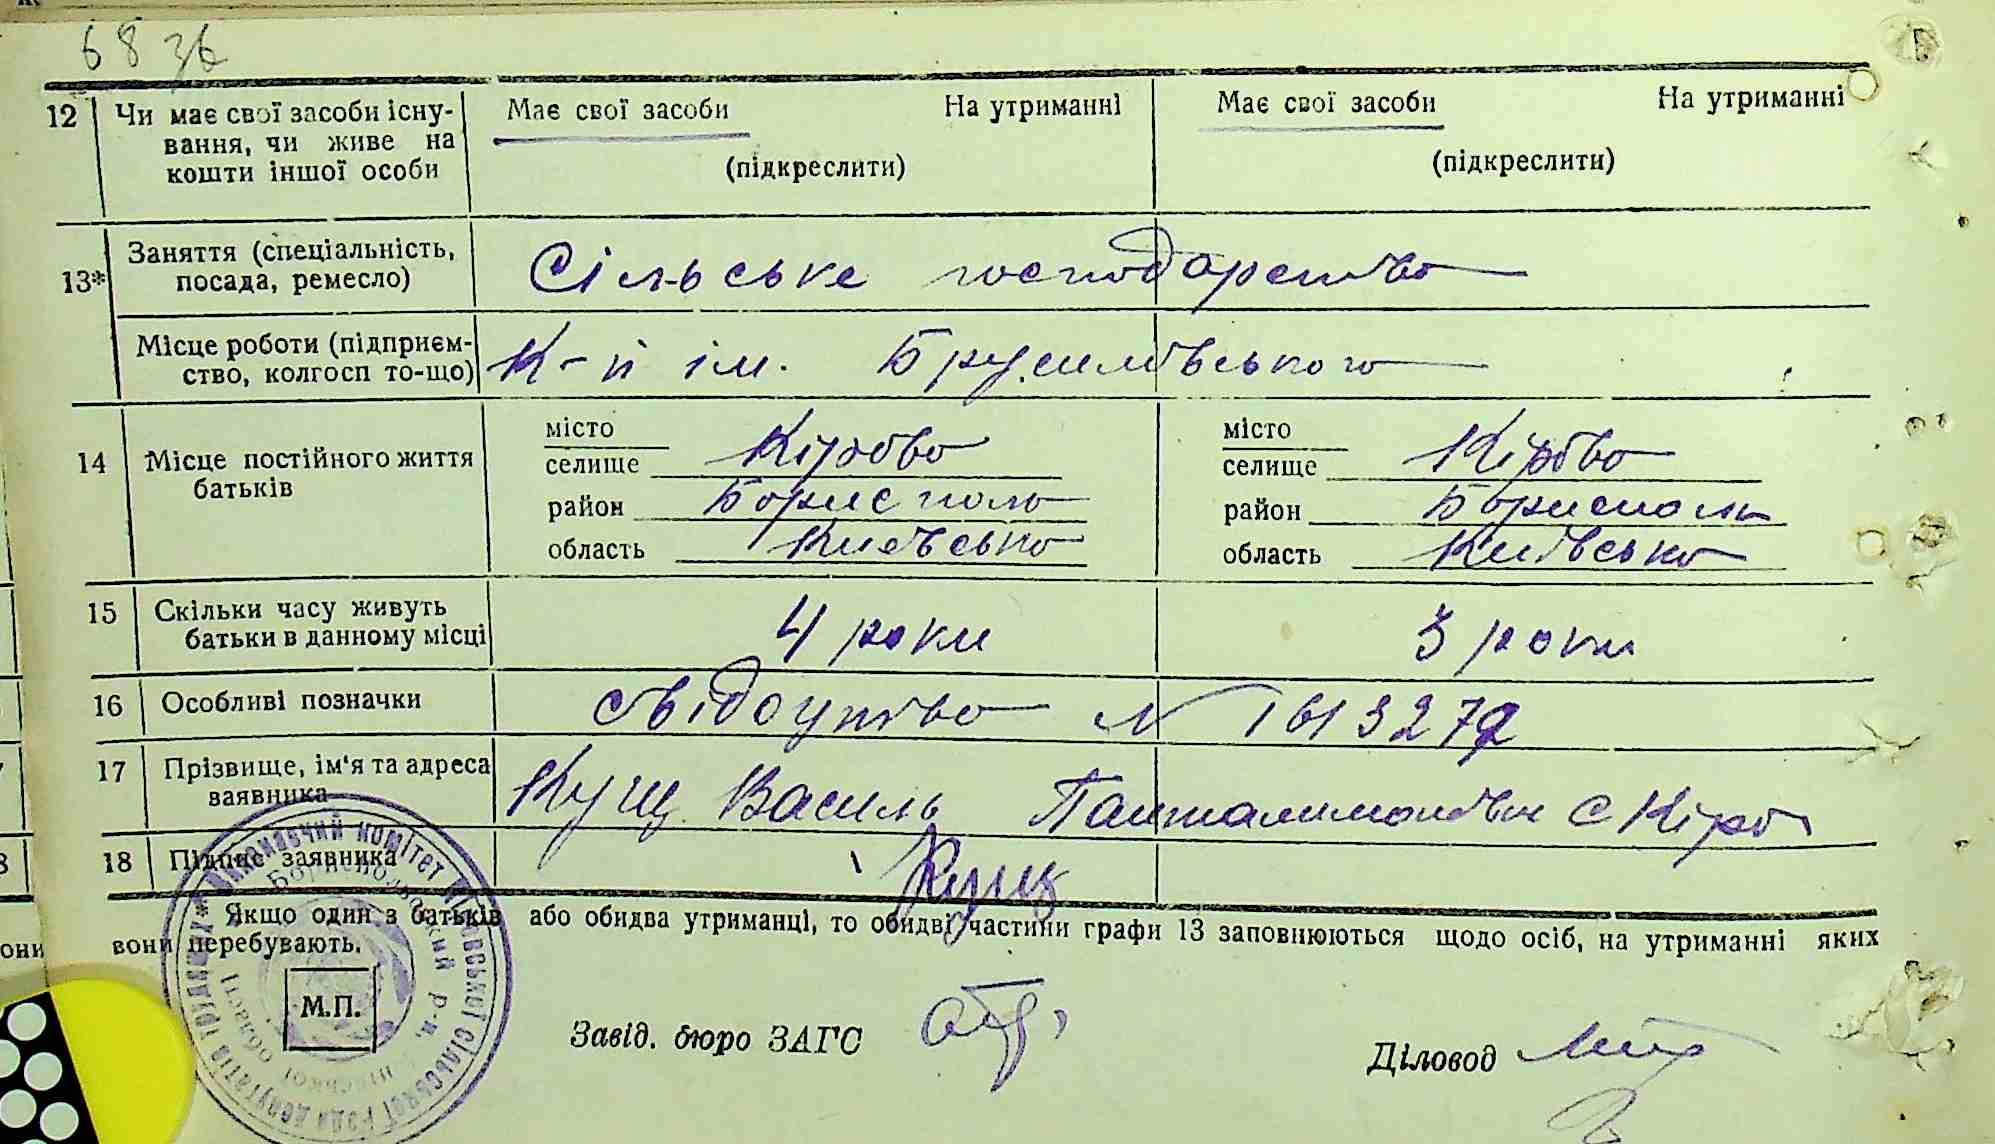 68 зв
12 Чи має свої засоби існу- Має свої засоби На утриманні Має свої засоби На утриманні
вання, чи живе на (підкреслити) (підкреслити)
кошти іншої особи
13* Заняття (спеціальність, Сільське господарство
посада, ремесло)
Місце роботи (підприєм- К-п ім. Брусилівського
ство, колгосп то-що)
місто Кірово місто Кірово
14 Місце постійного життя селище селище
батьків район Бориспіль район Бориспіль
область Київсько область Київсько
15 Скільки часу живуть 4 роки 3 роки
батьки в данному місці
16 Особливі позначки свідоцтво N
17 Прізвище, ім'я та адреса Кущ Василь Панталимонівич с Кіро
заявника
18 Підпис заявника Кущ
Якщо один з батьків або обидва утриманці, то обидві частини графи 13 заповнюються щодо осіб, на утриманні яких
вони перебувають.
М.П.
Завід. бюро ЗАГС Діловод
виконавчий комітет Кірівської сільської Ради депутатів трудящих
Бориспольський р-н, області